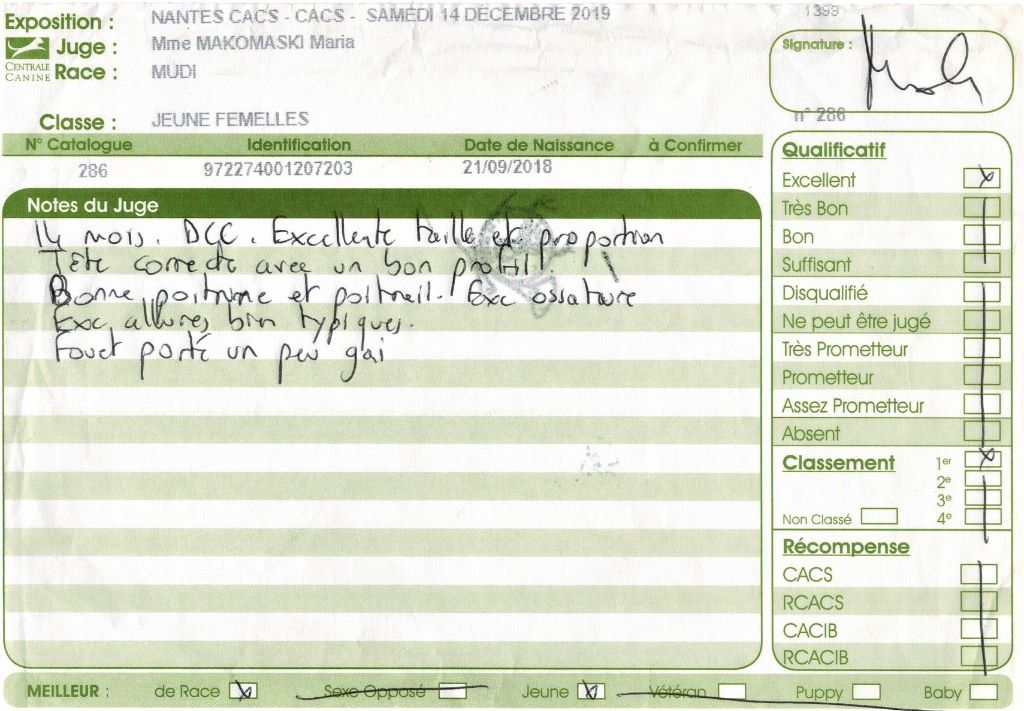 Exposition : NANTES CACS - CACS - SAMEDI 14 DECEMBRE 2019
1399
Juge : Mme MAKOMASKI Maria
CENTRALE CANINE
Race : MUDI
Signature :
Classe : JEUNE FEMELLES
n° 286
N° Catalogue Identification Date de Naissance à Confirmer
286 972274001207203 21/09/2018
Notes du Juge
14 mois. DCC. Excellente taille et proportion
Tête correcte avec un bon profil.
Bonne poitrine et poitrail. Exc ossature
Exc allures bien typiques.
Fouet porté un peu gai
Qualificatif
Excellent x
Très Bon
Bon
Suffisant
Disqualifié
Ne peut être jugé
Très Prometteur
Prometteur
Assez Prometteur
Absent
Classement 1er x
2e
3e
Non Classé 4e
Récompense
CACS
RCACS
CACIB
RCACIB
MEILLEUR : de Race x Sexe Opposé Jeune x Vétéran Puppy Baby